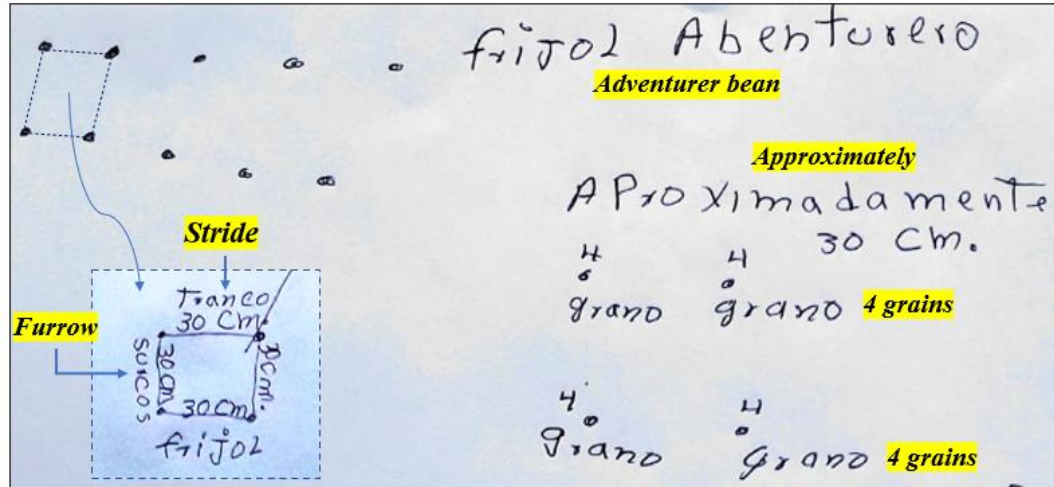 frijol Abenturero
Adventurer bean
Approximately
APROXimadamente
30 Cm.
4 4
grano grano 4 grains
4 4
grano grano 4 grains
Stride
Tranco
30 Cm.
Furrow
surcos
30 Cm.
30 Cm.
30 Cm.
frijol